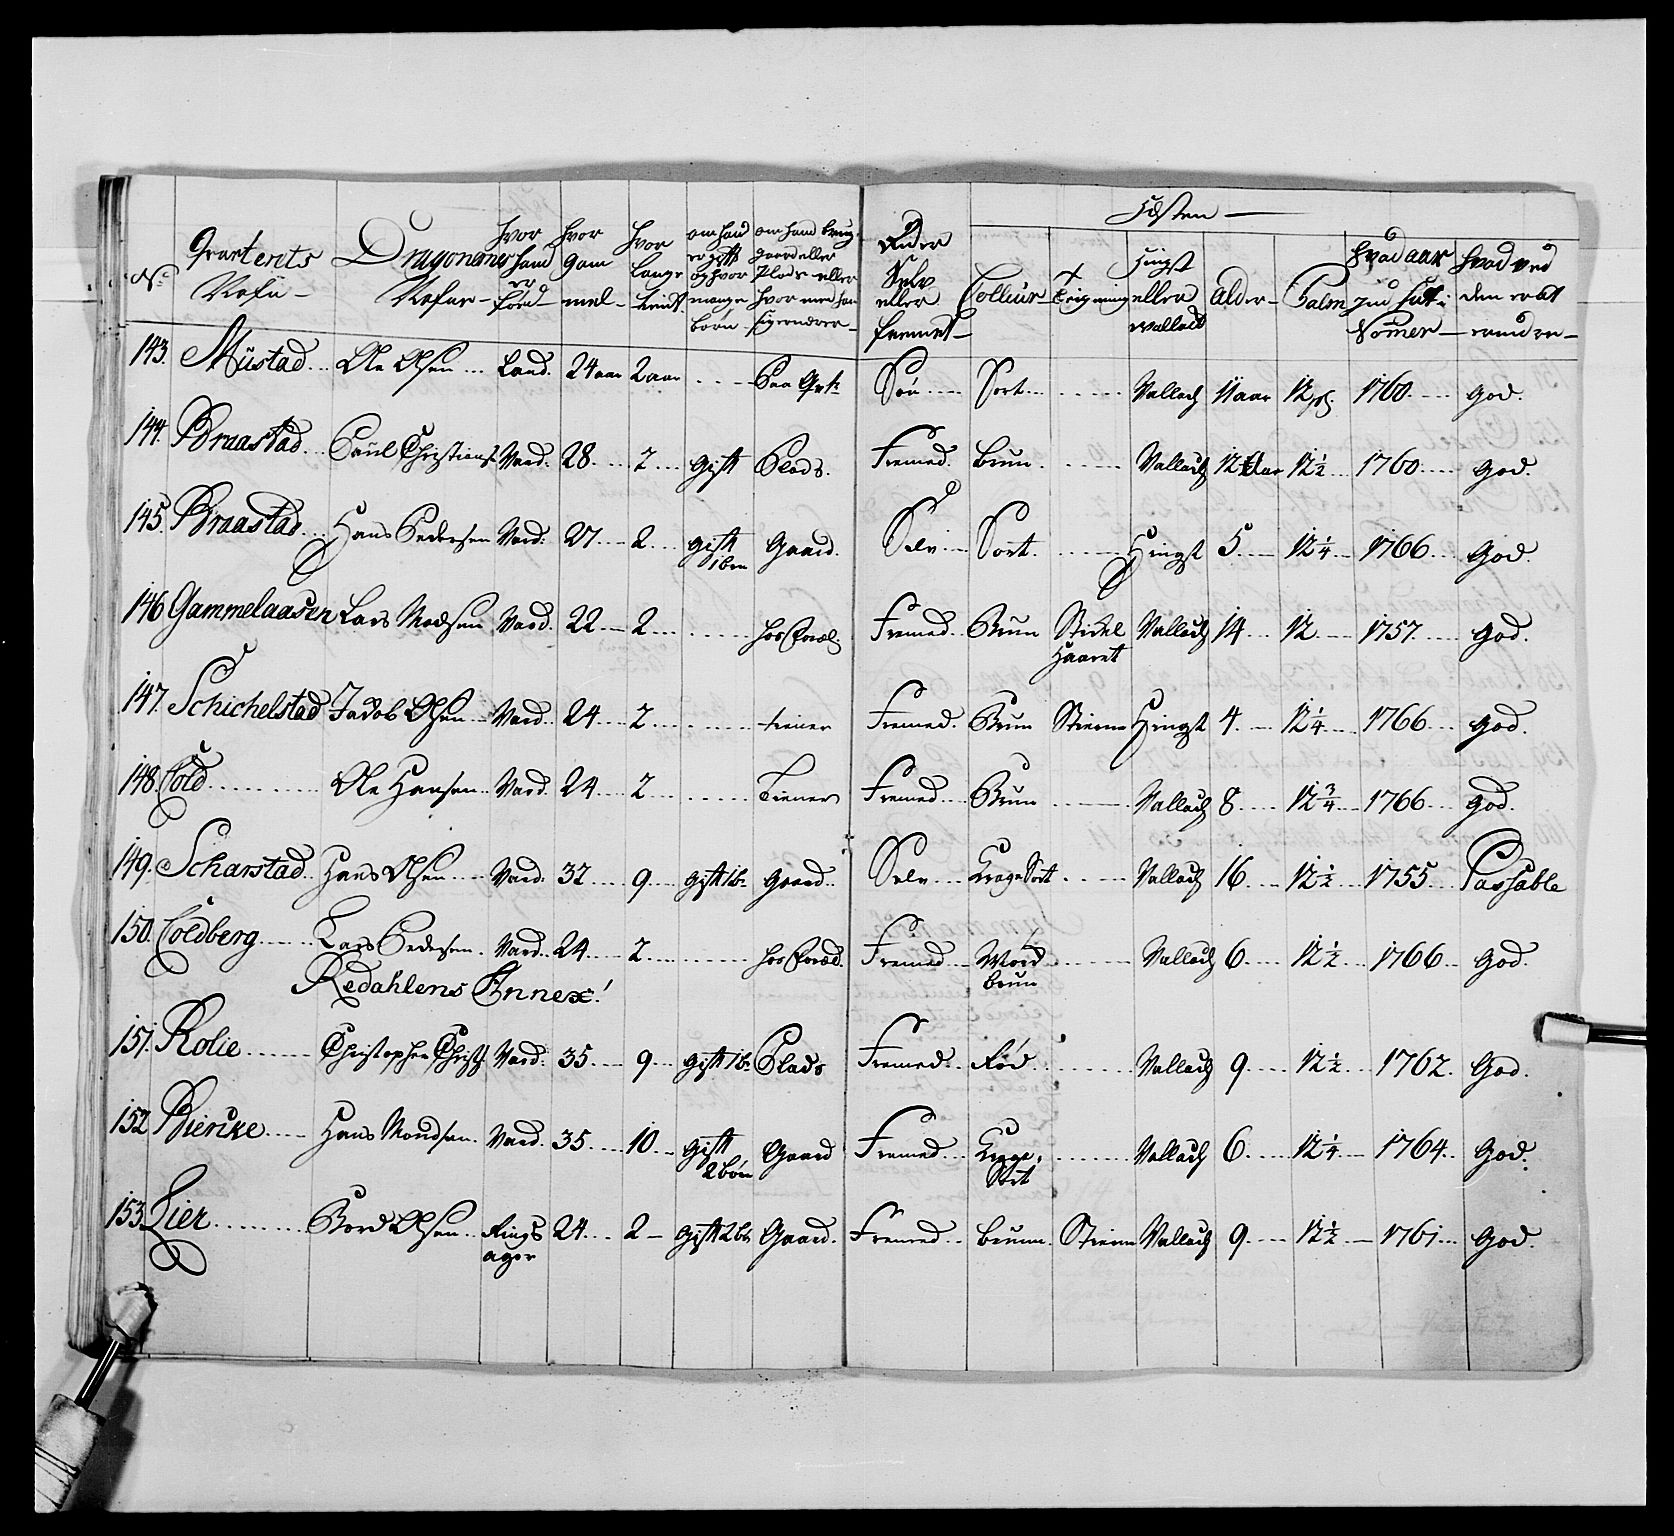 Hæsten
No. Qvarterets Nafn Dragonernes Nafne hvor hand er föed hvor gammel hvor lange tient om hand er gift og hvor mange børn om hand brug. gaard eller Plads eller hvor med han sig ernærer Rider Selv eller fremet Colleur Teigning Hingst eller Wallack Alder Palm hvad aar Nommer hvad ved den er at
143. Müstad Ole Olsen Land. 24 aar 2 aar Paa Qvt: Søn Sort Vallach 11 aar 12 1760 god.
144. Braastad Poül Christians: Vard. 28 2 gift Plads. Fremed Brun Vallach 12 Aar 12½ 1760 god.
145. Braastad Hans Pedersen Vard. 27 2 gift 1 brn Gaard. Selv Sort. Hingst 5 12¼ 1766 god.
146 Gammelaasen Lars Madsen Vard. 22 2 hos Foræl. Fremed Brun Stickel Haaret Vallach 14 12 1757 god.
147. Schichelstad Jacob Olsen Vard. 24 2 tiener Fremed. Brun Stierne Hingst 4 12¼ 1766 god.
148. Cold Ole Hansen Vard. 24 2 Tiener Fremed Brun Vallach 8 12¾ 1766 god.
149. Scharstad Hans Olsen Vard. 32 9 gift 1 b: Gaard Selv Krage Sort Vallach 16 12½ 1755 Passable
150. Coldberg Lars Pedersen Vard. 24 2 hos Foræd. Fremed Brun Vallach 6 12½ 1766 God.
Redahlens Annex!
151. Rolie Christopher Christ: Vard. 35 9 gift 1 b: Plads Fremed Rød Vallach 9 12½ 1762 God.
152 Biercke Hans Monsen Vard. 35 10 gift 2 børn Gaard Fremed Krage Sort Vallach 6 12¼ 1764 God.
153 Lier Bord Olsen Rings ager 24 2 gift 2 b: Gaard. Fremed Brun Stierne Vallach 9 12½ 1761 God.